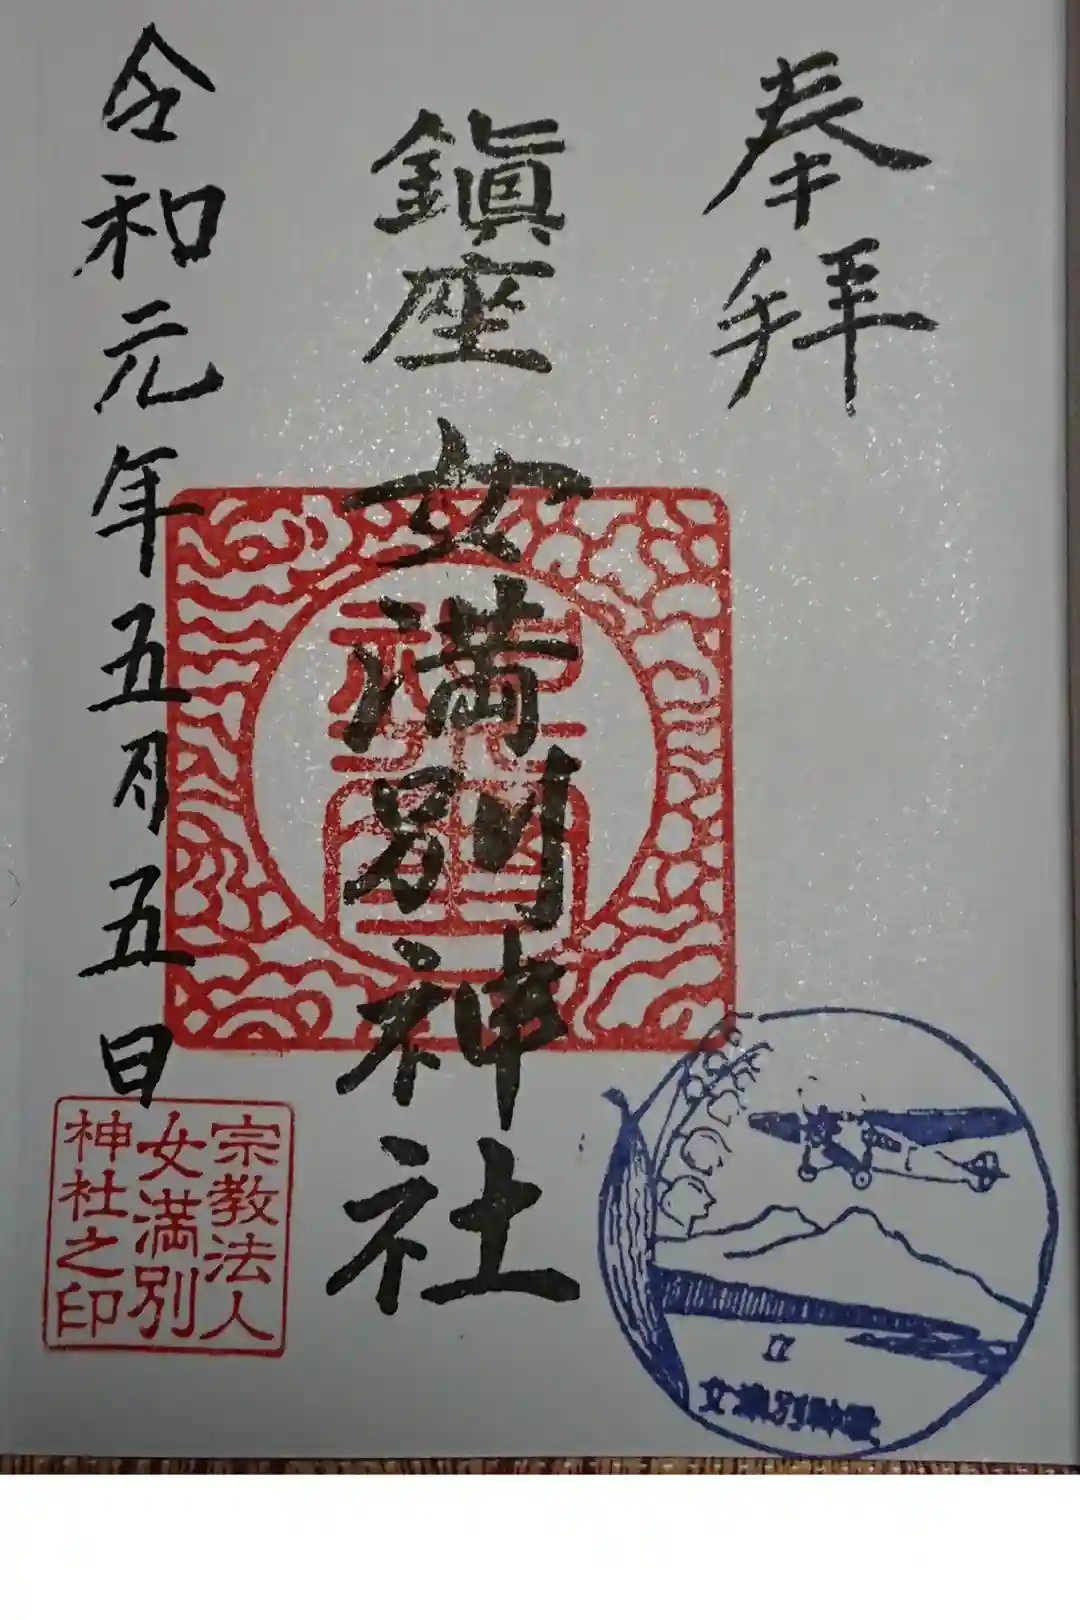 奉拝
鎭座
女満別神社
令和元年五月五日
宗教法人
女満別
神社之印
女満別神社